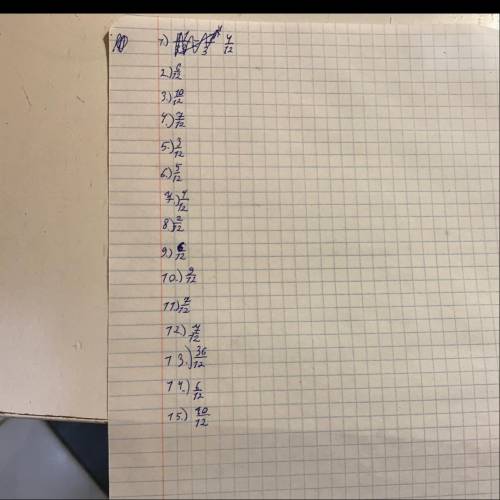 1) 4/12
2.) 6/12
3.) 10/12
4.) 7/12
5.) 3/12
6.) 5/12
7.) 4/12
8.) 2/12
9.) 6/12
10.) 9/12
11) 7/12
12) 4/12
13.) 36/12
14.) 6/12
15.) 10/12